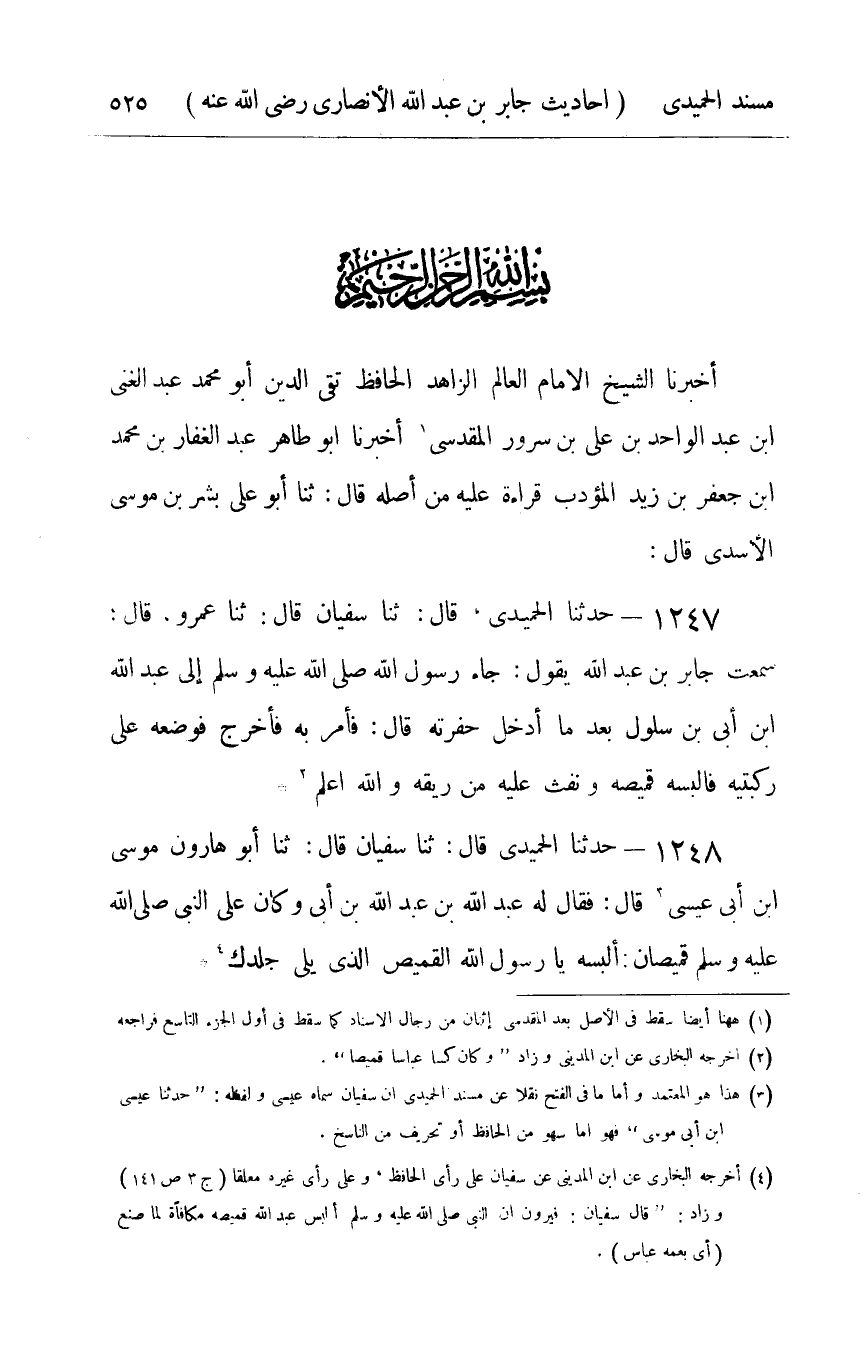 مسند الحميدى ( احاديث جابر بن عبد الله الأنصارى رضى الله عنه ) ٥٢٥
بسم الله الرحمن الرحيم
أخبرنا الشيخ الامام العالم الزاهد الحافظ تقى الدين أبو محمد عبد الغنى
ابن عبد الواحد بن على بن سرور المقدسى١ أخبرنا ابو طاهر عبد الغفار بن محمد
ابن جعفر بن زيد المؤدب قراءة عليه من أصله قال : ثنا أبو على بشر بن موسى
الأسدى قال :
١٢٤٧ – حدثنا الحميدى ، قال : ثنا سفيان قال : ثنا عمرو . قال :
سمعت جابر بن عبد الله يقول : جاء رسول الله صلى الله عليه و سلم إلى عبد الله
ابن أبى بن سلول بعد ما أدخل حفرته قال : فأمر به فأخرج فوضعه على
ركبتيه فالبسه قميصه و نفث عليه من ريقه و الله اعلم٢ *
١٢٤٨ – حدثنا الحميدى قال : ثنا سفيان قال : ثنا أبو هارون موسى
ابن أبى عيسى٣ قال : فقال له عبد الله بن عبد الله بن أبى و كان على النبى صلى الله
عليه و سلم قميصان : ألبسه يا رسول الله القميص الذى يلى جلدك٤ *
(١) ههنا أيضا سقط فى الأصل بعد المقدسى إثنان من رجال الاسناد كما سقط فى أول الجزء التاسع فراجعه
(٢) اخرجه البخارى عن ابن المدينى و زاد ” و كان كسا عباسا قميصا “ .
(٣) هذا هو المعتمد و أما ما فى الفتح نقلا عن مسند الحميدى ان سفيان سماه عيسى و لفظه : ” حدثنا عيسى
ابن أبى موسى “ فهو اما سهو من الحافظ أو تحريف من الناسخ .
(٤) أخرجه البخارى عن ابن المدينى عن سفيان على رأى الحافظ ، و على رأى غيره معلقا ( ج ٣ ص ١٤١ )
و زاد : ” قال سفيان : فيرون ان النبى صلى الله عليه و سلم ألبس عبد الله قميصه مكافأة لما صنع
( أى بعمه عباس ) .